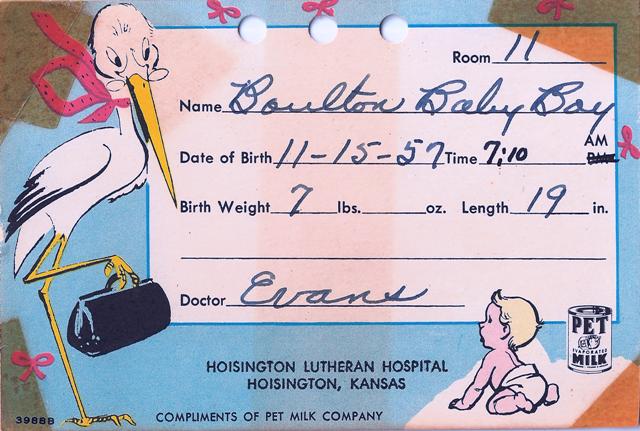 Room 11
Name Boulton Baby Boy
Date of Birth 11-15-57 Time 7:10 AM PM
Birth Weight 7 lbs. oz. Length 19 in.
Doctor Evans
PET
EVAPORATED
MILK
HOISINGTON LUTHERAN HOSPITAL
HOISINGTON, KANSAS
3988B
COMPLIMENTS OF PET MILK COMPANY